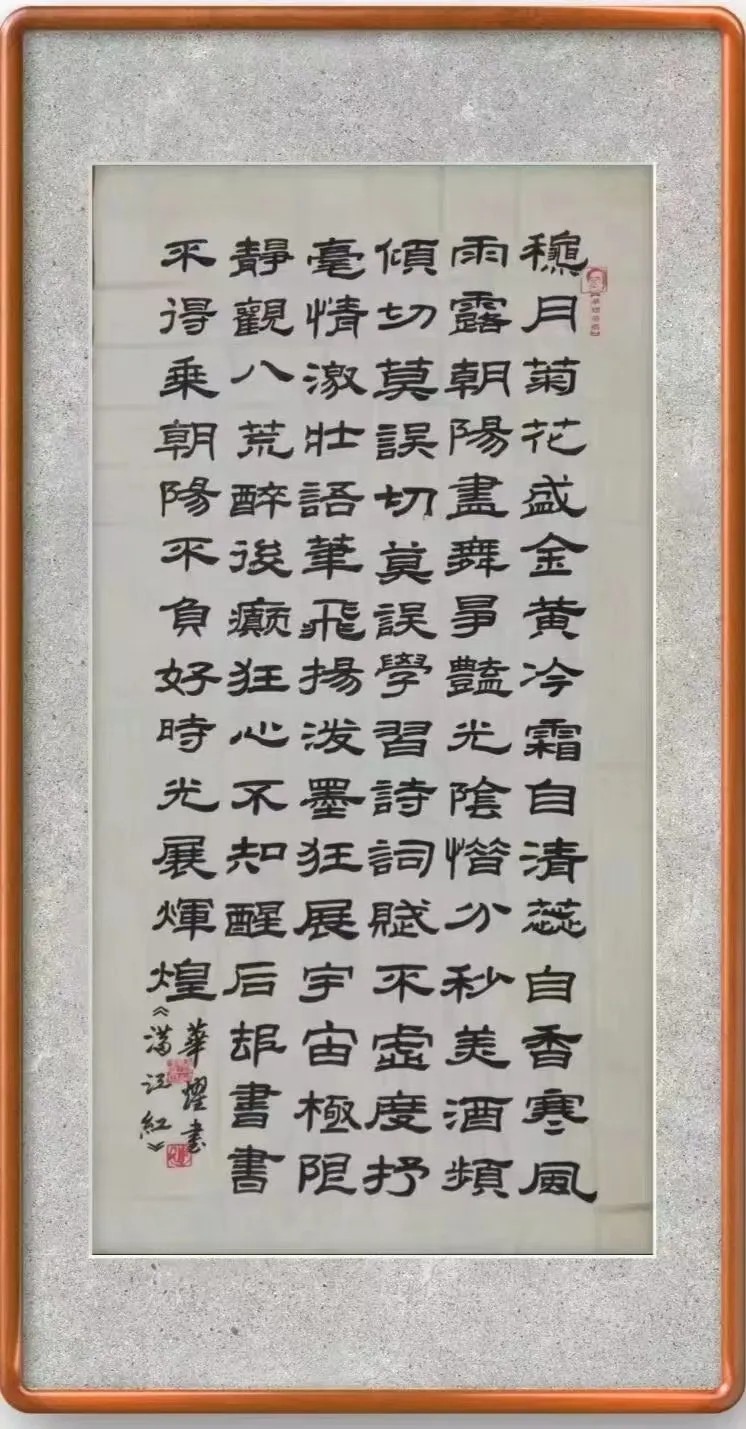 龝月菊花盛金黄冷霜自清蕊自香寒風
雨露朝陽盡舞爭豔光陰惜分秒美酒頻
傾切莫誤切莫誤學習詩詞賦不虛度抒
毫情激壯語筆飛揚潑墨狂展宇宙極限
靜觀八荒醉後癲狂心不知醒后却書書
不得乘朝陽不負好時光展煇煌
華燿書
《滿江紅》